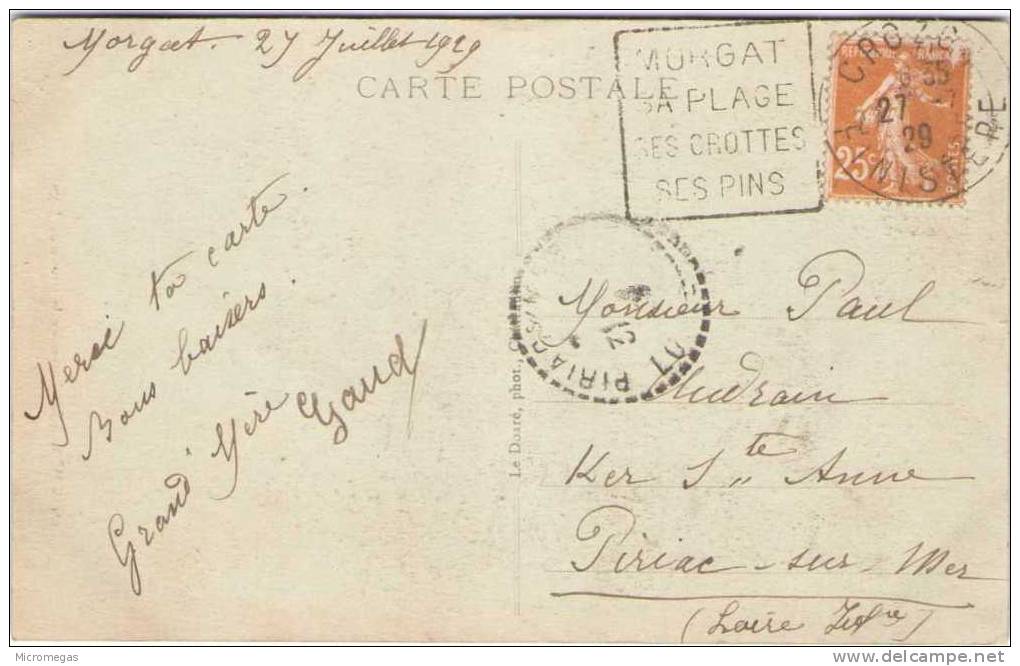 Morgat. 27 Juillet 1929
CARTE POSTALE
MORGAT
SA PLAGE
SES GROTTES
SES PINS
CROZON
6 35
27 -7
29
FINISTERE
25c
POSTES
Merci ta carte.
Bons baisers.
Grand'Mère Gaud
Le Doaré, phot.,
PIRIAC S/MER
Monsieur Paul
Audrain
Ker Ste Anne
Piriac-sur-Mer
(Loire Infre)
Micromegas
delcampe.net